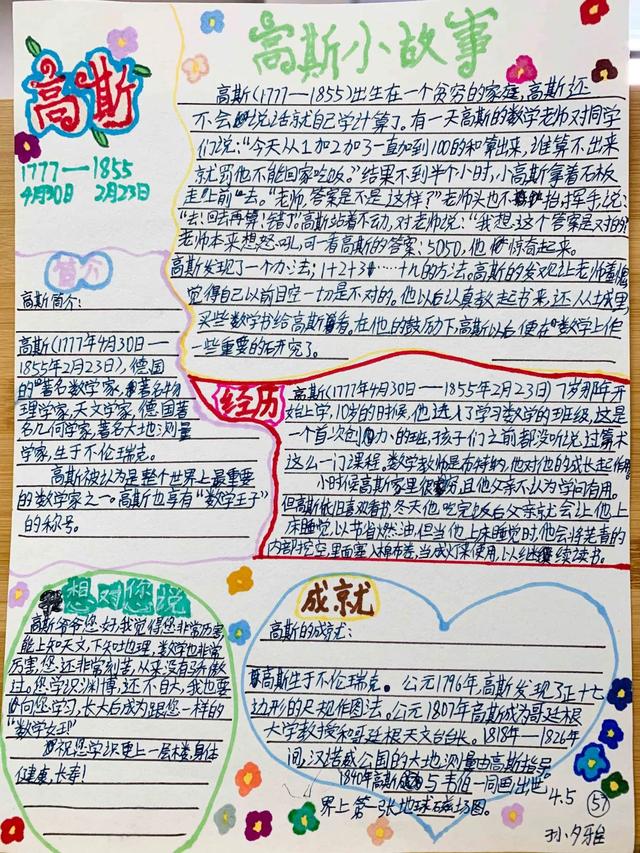 高斯小故事
高斯
1777—1855
4月30日 2月23日
高斯(1777—1855)出生在一个贫穷的家庭,高斯还
不会说话就自己学计算了。有一天高斯的数学老师对同学
们说:“今天从1加2加3一直加到100的和算出来,谁算不出来
就罚他不能回家吃饭。”结果不到半个小时,小高斯拿着石板
走上前去。“老师,答案是不是这样?”老师头也不抬挥手,说:
“去!回去再算!错了”高斯站着不动,对老师说:“我想:这个答案是对的
老师本来想怒吼,可一看高斯的答案:5050,他惊奇起来。
高斯发现了一个办法;1+2+3……+n的方法。高斯的发现让老师羞愧
觉得自己以前目空一切是不对的。他以后认真教起书来,还从城里
买些数学书给高斯看。在他的鼓励下,高斯以后便在数学上作
一些重要的研究了。
简介
高斯简介:
高斯(1777年4月30日—
1855年2月23日),德国
的著名数学家,著名物
理学家,天文学家,德国著
名几何学家,著名大地测量
学家,生于不伦瑞克。
高斯被认为是整个世界上最重要
的数学家之一。高斯也享有“数学王子”
的称号。
经历
高斯(1777年4月30日—1855年2月23日)7岁那年开
始上学,10岁的时候,他进入了学习数学的班级,这是
一个首次创办的班,孩子们之前都没听说过算术
这么一门课程。数学教师是布特纳,他对他的成长起作用。
小时候高斯家里很穷,且他父亲不认为学问有用。
但高斯依旧喜欢看书,冬天他吃完饭后父亲就会让他上
床睡觉,以节省燃油,但当他上床睡觉时,他会将芜菁的
内部挖空,里面塞入棉布卷,当成灯来使用,以继续读书。
想对您说
高斯爷爷您好,我觉得您非常厉害,
能上知天文,下知地理,数学也非常
厉害,您还非常刻苦,从来没有骄傲
过。您学识渊博,还不自大,我也要
向您学习,长大后成为跟您一样的
“数学女王!”
祝您学识更上一层楼,身体
健康,长寿!
成就
高斯的成就:
高斯生于不伦瑞克。公元1796年,高斯发现了正十七
边形的尺规作图法。公元1807年高斯成为哥廷根
大学教授和哥廷根天文台台长。1818年—1826年
间,汉诺威公国的大地测量由高斯指导。
1840年高斯与韦伯一同画出世
界上第一张地球磁场图。
4.5
57
孙夕雅